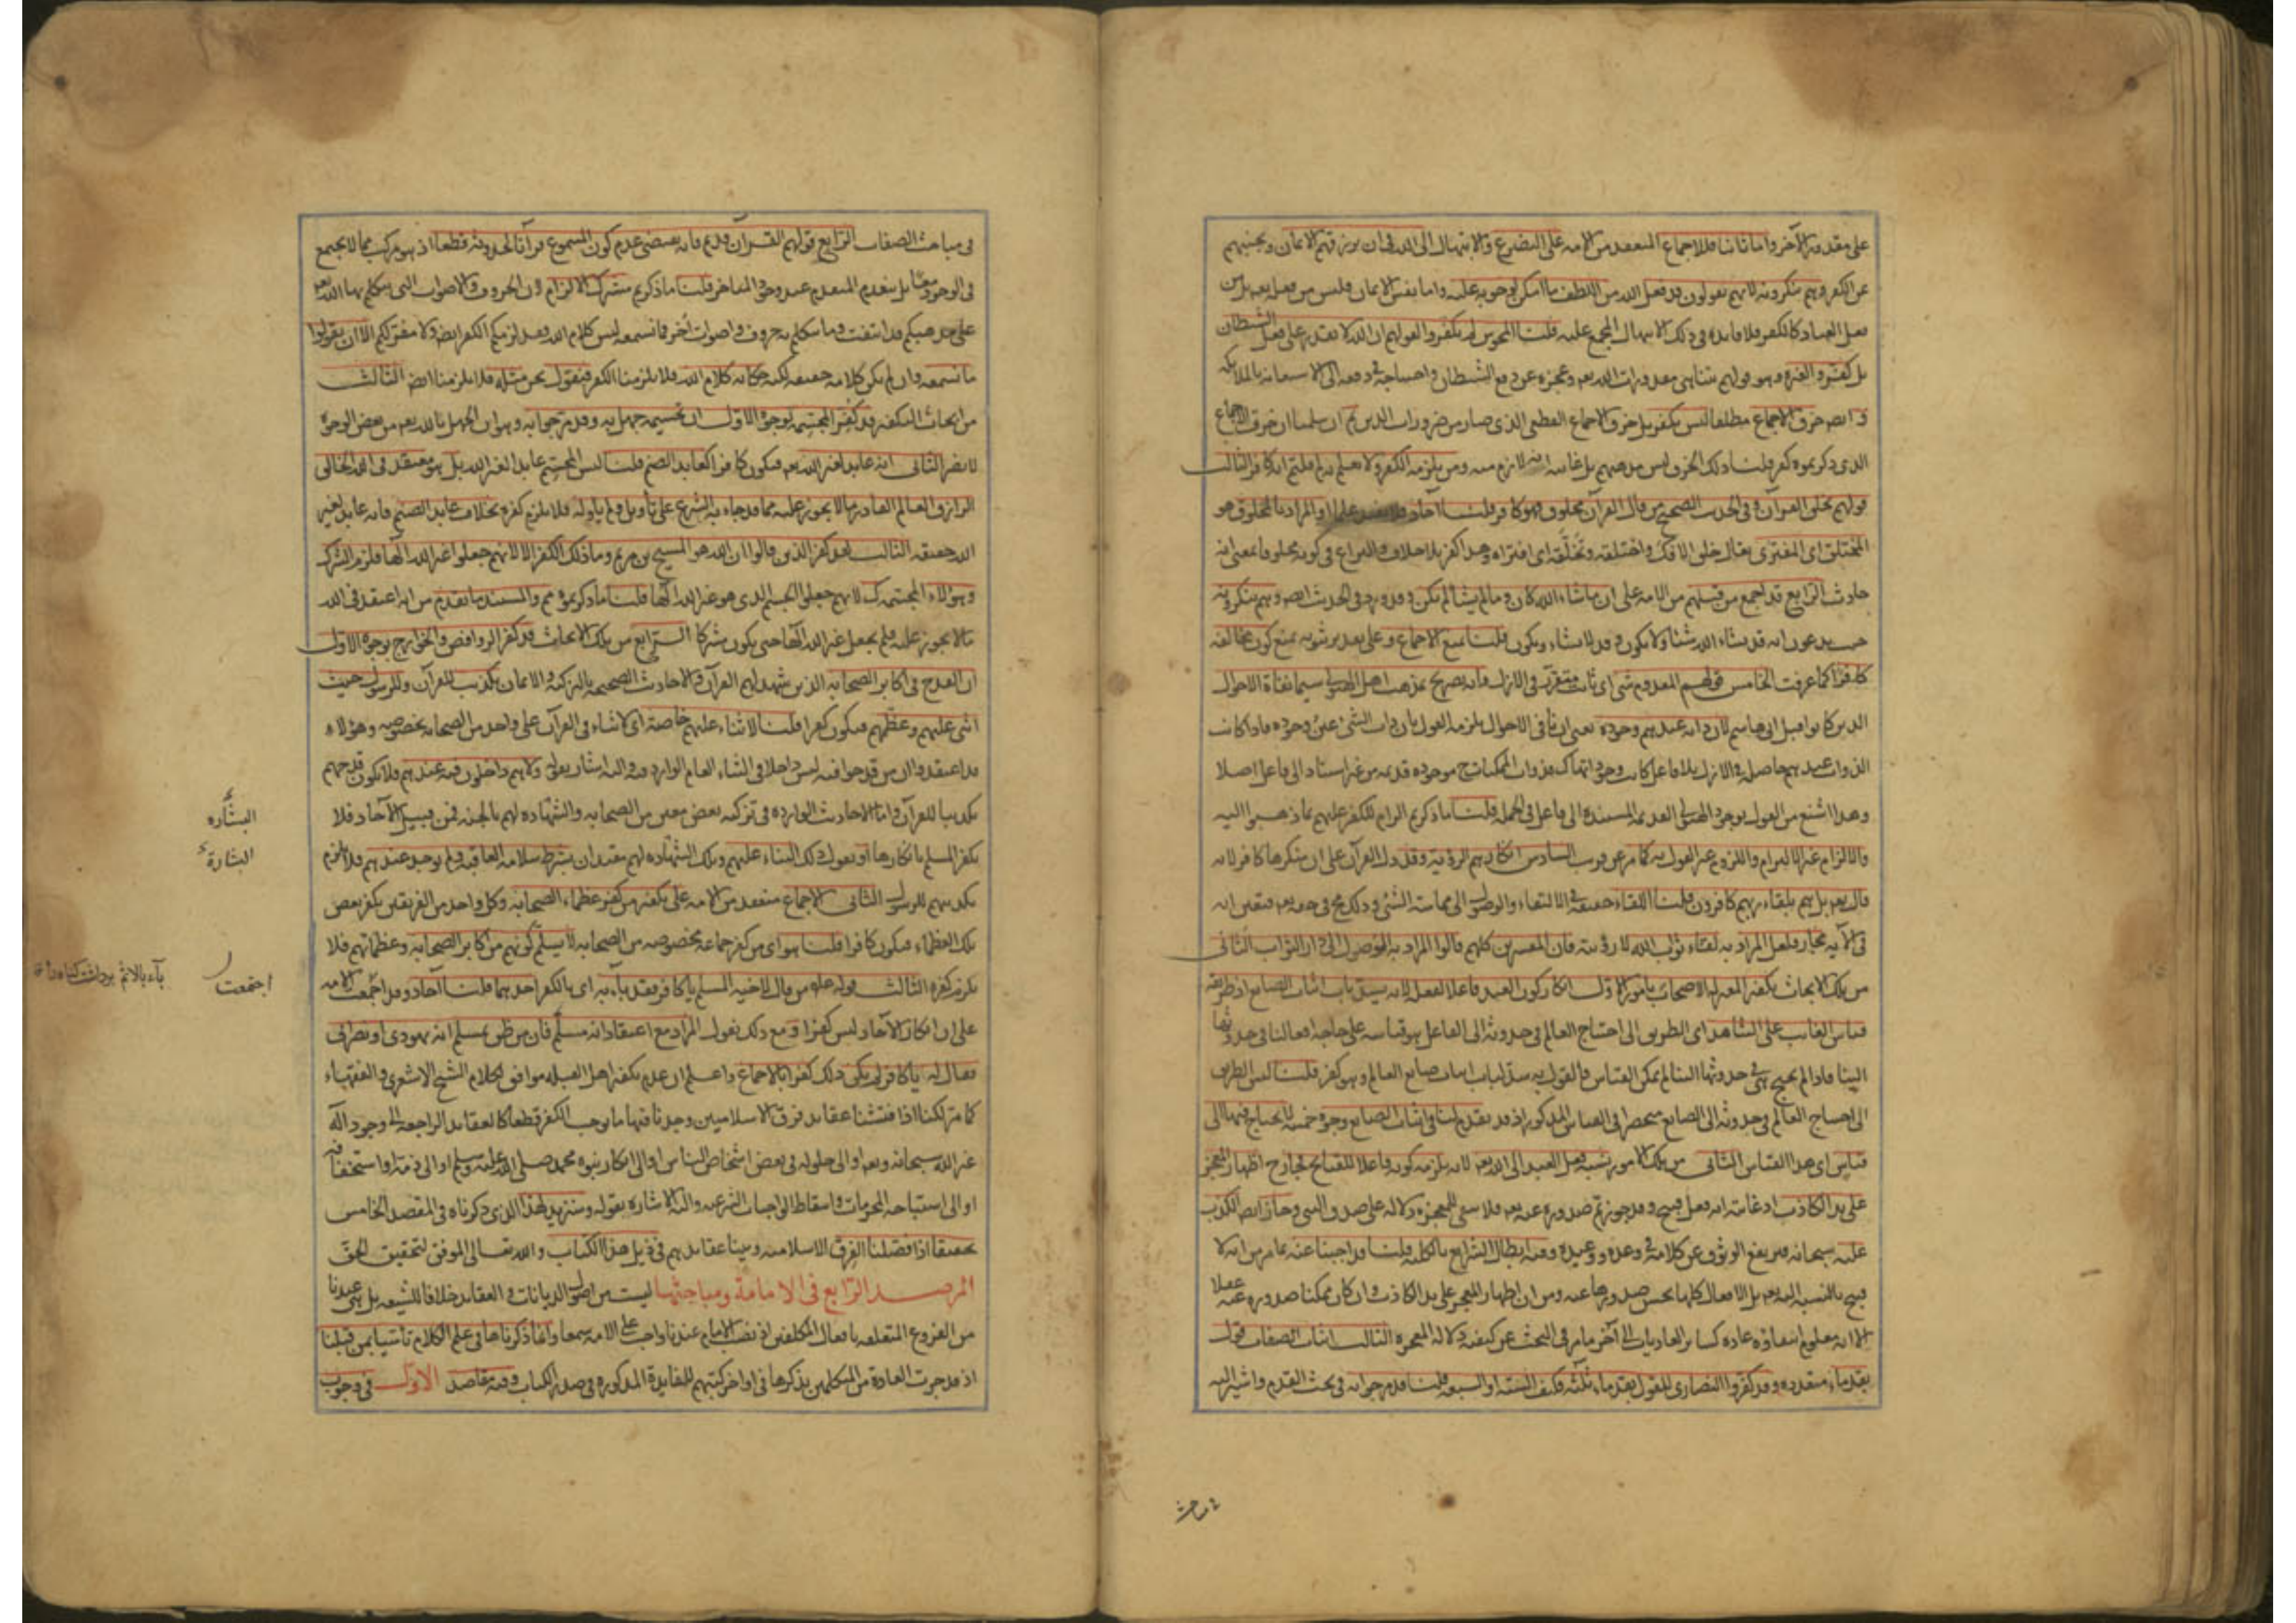 على مقدوريه الآخر واما ثانيا فللاجماع المنعقد من الامه على التضرع والابتهال الى الله في ان يرزقهم الايمان ويجنبهم
عن الكفر وهم ينكرونه لانهم يقولون قد فعل الله من اللطف ما امكن لوجوبه عليه واما نفس الايمان فليس من فعله بل من
فعل العباد كالكفر فلا فايده في ذلك الابتهال المجمع عليه قلنا المجوس لم يكفروا لقولهم ان الله لا يقدر على فعل الشيطان
بل كفروا لغيره وهو قولهم بتناهي مقدورات الله تعم وعجزه عن دفع الشيطان واحتياجه في دفعه الى الاستعانه بالملائكه
وايضه خرق الاجماع مطلقا ليس بكفر بل خرق الاجماع القطعي الذي صار من ضروريات الدين ثم ان سلمنا ان خرق الاجماع
الذي ذكرتموه كفر قلنا ذلك الخرق ليس مذهبهم بل غايته انه لازم منه ومن يلزمه الكفر ولا يعلم به لم قلتم انه كافر الثالث
قولهم بخلق القرآن وفي الحديث الصحيح من قال القرآن مخلوق فهو كافر قلنا آحاد فلا يفيد علما او المراد بالمخلوق هو
المختلق اي المفترى يقال خلق الافك واختلقه وتخلّقه اي افتراه وهذا كفر بلا خلاف والنزاع في كونه مخلوقا بمعنى انه
حادث الرابع قد اجمع من قبلهم من الامه على ان ما شاء الله كان وما لم يشأ لم يكن وقد ورد في الحديث ايضه وهم ينكرونه
حيث يدعون انه قد يشاء الله شيئا ولا يكون وقد لا يشاء ويكون قلنا نمنع الاجماع وعلى تقدير ثبوته نمنع كون مخالفه
كافرا كما عرفت الخامس قولهم المعدوم شي اي ثابت متقرّر في الازل فانه تصريح بمذهب اهل الهيولى سيما نفاة الاحوال
الذين كانوا قبل ابي هاشم لان ذاته عندهم وجوده يعني ان نافي الاحوال يلزمه القول بان ذات الشئ عين وجوده فاذا كانت
الذوات عندهم حاصله في الازل بلا فاعل كانت وجوداتها كذلك فذوات الممكنات ح موجوده قديمه من غير استناد الى فاعل اصلا
وهذا اشنع من القول بوجود الهيولى القديمه المستنده الى فاعل في الجمله قلنا ما ذكرتم الزام للكفر عليهم بما ذهبوا اليه
والالزام غير الالتزام واللزوم غير القول به كما مر عن قريب السادس انكارهم الرؤيه وقد دل القرآن على ان منكرها كافر لانه
قال تعم بل هم بلقاء ربهم كافرون قلنا اللقاء حقيقه في الالتقاء والوصول الى مماسة الشئ وذلك مح في حقه تعم فتعين انه
في الآيه مجاز فلعل المراد به لقاء ثواب الله لا رؤيته فان المفسرين كلهم قالوا المراد به الوصول الى دار الثواب الثاني
من تلك الابحاث تكفير المعتزله الاصحاب بامور الاول انكار كون العبد فاعلا لفعله لانه يسد باب اثبات الصانع اذ طريقه
قياس الغائب على الشاهد اي الطريق الى احتياج العالم في حدوثه الى الفاعل هو قياسه على حاجه افعالنا في حدوثها
الينا فاذا لم يحتج هي في حدوثها الينا لم يمكن القياس فالقول به سدّ لباب اثبات صانع العالم وهو كفر قلنا ليس الطريق
الى احتياج العالم في حدوثه الى الصانع منحصرا في القياس المذكور اذ قد تقدم لنا في اثبات الصانع وجوه خمسه لا يحتاج فيها الى
قياس اي هذا القياس الثاني من تلك الامور نسبه فعل العبد الى الله تعم لانه يلزم كونه فاعلا للقبائح فجاز ح اظهار المعجز
على يد الكاذب اذ غايته انه فعل قبيح وقد جوزتم صدوره عنه تعم فلا يبقى للمعجزه دلاله على صدق النبي وجاز ايضه الكذب
عليه سبحانه فيرتفع الوثوق عن كلامه في وعده ووعيده وفيه ابطال الشرايع بالكليه قلنا قد اجبنا عنه بما مر من انه لا
قبيح بالنسبه اليه تعم بل الافعال كلها يحسن صدورها عنه ومن ان اظهار المعجز على يد الكاذب وان كان ممكنا صدوره عنه عقلا
الا انه معلوم انتفاؤه عاده كسائر العاديات الى آخر ما مر في البحث عن كيفيه دلاله المعجزه الثالث اثبات الصفات قول
بقدماء متعدده وقد كفروا النصارى للقول بقدماء ثلثه فكيف السته او السبعه قلنا قد مر جوابه في بحث القدم واشير اليه
في مباحث
في مباحث الصفات الرابع قولهم القرآن قديم فانه يقتضي عدم كون المسموع قرآنا لحدوثه قطعا اذ هو مركب مما لا يجتمع
في الوجود معا بل ينعدم المتقدم عند وجود المتاخر قلنا ما ذكرتم مشترك الالزام لان الحروف والاصوات التي يتكلم بها الله تعم
على مذهبكم قد انتفت وما نتكلم به حروف واصوات أخر فما نسمعه ليس كلام الله فقد لزمكم الكفر ايضه ولا مفر لكم الا ان يقولوا
ما نسمعه وان لم يكن كلامه حقيقه لكنه حكايه كلام الله فلا يلزمنا الكفر فنقول نحن مثله فلا يلزمنا ايضه الثالث
من ابحاث التكفير قد كُفّر المجسّمه بوجوه الاول ان تجسيمه جهل به وقد مر جوابه وهو ان الجهل بالله تعم من بعض الوجوه
لا يضر الثاني انه عابد لغير الله تعم فيكون كافرا كعابد الصنم قلنا ليس المجسم عابدا لغير الله بل هو معتقد في الله الخالق
الرازق العالم القادر ما لا يجوز عليه مما قد جاء به الشرع على تأويل ولم يأوله فلا يلزم كفره بخلاف عابد الصنم فانه عابد لغير
الله حقيقه الثالث لقد كفر الذين قالوا ان الله هو المسيح بن مريم وما ذلك الكفر الا لانهم جعلوا غير الله الها فلزم الشرك
وهؤلاء المجسمه كذلك لانهم جعلوا الجسم الذي هو غير الله الها قلنا ما ذكرتموه مم والمستند ما تقدم من انه اعتقد في الله
ما لا يجوز عليه فلم يجعل غير الله الها حتى يكون مشركا الرابع من تلك الابحاث قد كفر الروافض والخوارج بوجوه الاول
ان القدح في اكابر الصحابه الذين شهد لهم القرآن والاحاديث الصحيحه بالتزكيه والايمان تكذيب للقرآن وللرسول حيث
اثنى عليهم وعظّمهم فيكون كفرا قلنا لا ثناء عليهم خاصة اي لا ثناء في القرآن على واحد من الصحابه بخصوصه وهؤلاء
قد اعتقدوا ان من قدحوا فيه ليس داخلا في الثناء العام الوارد فيه واليه اشار بقوله ولا هم داخلون فيه عندهم فلا يكون قدحهم
تكذيبا للقرآن واما الاحاديث الوارده في تزكيه بعض معين من الصحابه والشهاده لهم بالجنه فمن قبيل الآحاد فلا
يكفر المسلم بانكارها او نقول ذلك الثناء عليهم وتلك الشهاده لهم مقيدان بشرط سلامه العاقبه ولم يوجد عندهم فلا يلزم
تكذيبهم للرسول الثاني الاجماع منعقد من الامه على تكفير من كفر عظماء الصحابه وكل واحد من الفريقين يكفر بعض
تلك العظماء فيكون كافرا قلنا هو اي من كفر جماعه مخصوصه من الصحابه لا يسلّم كونهم من اكابر الصحابه وعظمائهم فلا
يلزم كفره الثالث قوله علم من قال لاخيه المسلم يا كافر فقد باء به اي بالكفر احدهما قلنا آحاد وقد اجمعت الامه
على ان انكار الآحاد ليس كفرا ومع ذلك نقول المراد مع اعتقاد انه مسلم فان من ظن بمسلم انه يهودي او نصراني
فقال له يا كافر لم يكن ذلك كفرا بالاجماع واعلم ان عدم تكفير اهل القبله موافق لكلام الشيخ الاشعري والفقهاء
كما مر لكنا اذا فتشنا عقايد فرق الاسلاميين وجدنا فيها ما يوجب الكفر قطعا كالعقايد الراجعه الى وجود آله
غير الله سبحانه وتعم او الى حلوله في بعض اشخاص الناس او الى انكار نبوه محمد صلى الله عليه وسلم او الى ذمه او استخفافه
او الى استباحه المحرمات واسقاط الواجبات الشرعيه واليه الاشاره بقوله وسنزيد لهذا الذي ذكرناه في المقصد الخامس
تحقيقا اذا فصّلنا الفرق الاسلاميه وبينا عقايدهم في ذيل هذا الكتاب والله تعالى الموفق لتحقيق الحق
المرصد الرابع في الامامة ومباحثها ليست من اصول الديانات والعقايد خلافا للشيعه بل هي عندنا
من الفروع المتعلقه بافعال المكلفين اذ نصب الامام عندنا واجب على الامه سمعا وانما ذكرناها في علم الكلام تأسيا بمن قبلنا
اذ قد جرت العادة من المتكلمين بذكرها في اواخر كتبهم للفايدة المذكوره في صدر الكتاب وفيه مقاصد الاول في وجوب
اجتمعت
باء بالاثم